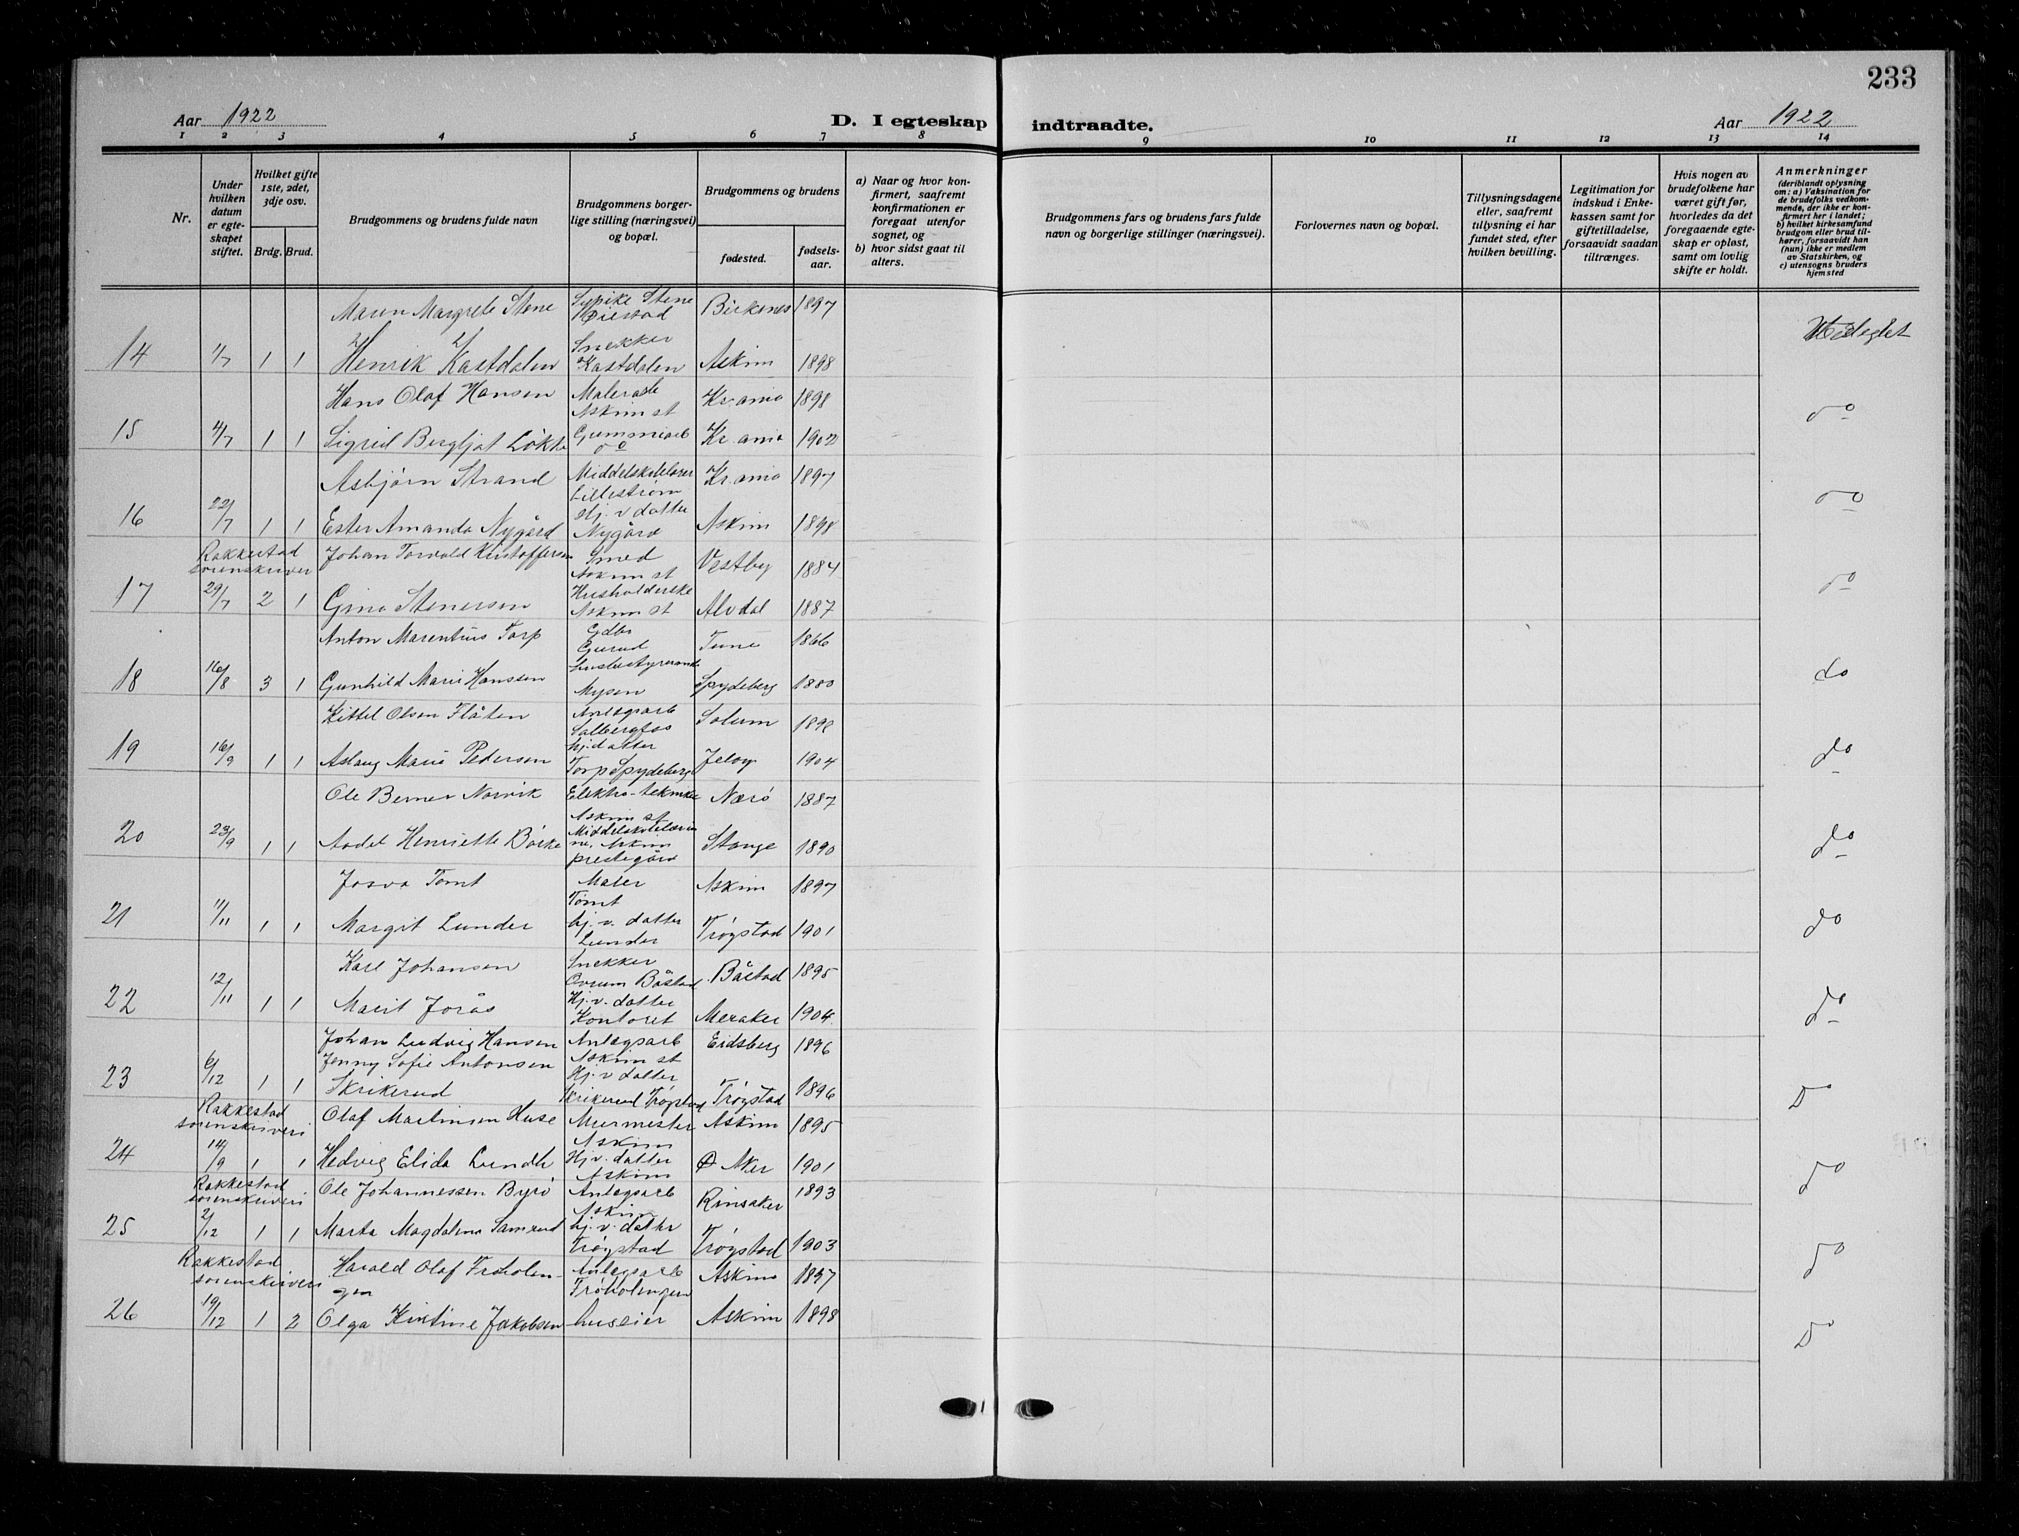 233
Aar 1922
D. I egteskap indtraadte.
Aar 1922
1 2 3 4 5 6 7 8 9 10 11 12 13 14
Nr.
Under hvilken datum er egteskapet stiftet.
Hvilket gifte 1ste, 2det, 3dje osv.
Brdg. Brud.
Brudgommens og brudens fulde navn
Brudgommens borgerlige stilling (næringsvei) og bopæl.
Brudgommens og brudens
fødested.
fødselsaar.
a) Naar og hvor konfirmert, saafremt konfirmationen er foregaat utenfor sognet, og
b) hvor sidst gaat til alters.
Brudgommens fars og brudens fars fulde navn og borgerlige stillinger (næringsvei).
Forlovernes navn og bopæl.
Tillysningsdagene eller, saafremt tillysning ei har fundet sted, efter hvilken bevilling.
Legitimation for indskud i Enkekassen samt for giftetilladelse, forsaavidt saadan tiltrænges.
Hvis nogen av brudefolkene har været gift før, hvorledes da det foregaaende egteskap er opløst, samt om lovlig skifte er holdt.
Anmerkninger
(deriblandt oplysning om: a) Vaksination for de brudefolks vedkommende, der ikke er konfirmert her i landet; b) hvilket kirkesamfund brudgom eller brud tilhører, forsaavidt han (hun) ikke er medlem av Statskirken, og c) utensogns bruders hjemsted
Maren Margrete Stene Sypike Stene Birkenes 1897
14 1/7 1 1 Henrik Kastdalen Snekker Kastdalen Askim 1898
Hans Olaf Hansen Askim st Kr.ania 1898 do
15 4/7 1 1 Sigrid Bergljot Løkke Gummiarb do Kr.ania 1902
Asbjørn Strand Middelskolelærer Lillestrøm Kr.ania 1897 do
16 22/7 1 1 Ester Amanda Nygård Hj. v datter Nygård Askim 1898
Rakkestad sorenskriver Johan Torvald Kristoffersen Smed Askim st Vestby 1884 do
17 29/7 2 1 Gina Stenersen Husholderske Askim st Alvdal 1887
Anton Marentius Torp Gdbr Tune 1866
18 16/8 3 1 Gunhild Marie Hanssen Husbestyrerinde Mysen Spydeberg 1880 do
Kittel Olsen Flåten Anlegsarb Solbergfos Solum 1898
19 16/9 1 1 Aslaug Marie Pedersen hj. datter Torp Spydeberg Jeløy 1904 do
Ole Berner Norvik Elektro-tekniker Askim st Nærø 1887
20 23/9 1 1 Aadel Henriette Børke Middelskolelærerinne, Askim prestegård Stange 1890 do
Josva Tomt Maler Tomt Askim 1897
21 11/11 1 1 Margit Lunder hj. v. datter Lunder Trøgstad 1901 do
Karl Johansen Snekker Båstad Båstad 1895
22 12/11 1 1 Marit Jorås Hj. v. datter Kontoret Meraker 1904 do
Johan Ludvig Hansen Anlegsarb Askim st Eidsberg 1896
23 6/12 1 1 Jenny Sofie Antonsen Skrikerud Hj. v datter Skrikerud Trøgstad Trøgstad 1896 Do
Rakkestad sorenskriveri Olaf Martinsen Huse Murmester Askim Askim 1895
24 14/9 1 1 Hedvig Elida Lundh Hj. v. datter Askim Ø Aker 1901 do
Rakkestad sorenskriveri Ole Johannessen Byrø Anlegsarb Askim Rinsaker 1893
25 2/12 1 1 Marta Magdalena Samrud hj. v. datter Trøgstad Trøgstad 1903 do
Rakkestad sorenskriveri Harald Olaf Trøholengen Anlegsarb Trøholengen Askim 1897
26 19/12 1 2 Olga Kristine Jakobsen huseier Askim 1898 Do